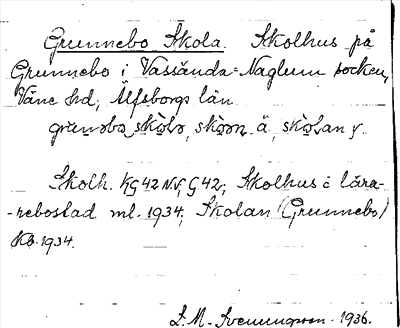 Grunnebo Skola. Skolhus på
Grunnebo i Vassända-Naglum socken,
Väne hd, Älfsborgs län.
grunəbo skolə, skoon ä, skolan y
Skolh. KG 42 NV, G 42, Skolhus o lära-
-rebostad ml. 1934, Skolan (Grunnebo)
Kb. 1934.
L. M. Svenungsson. 1936.